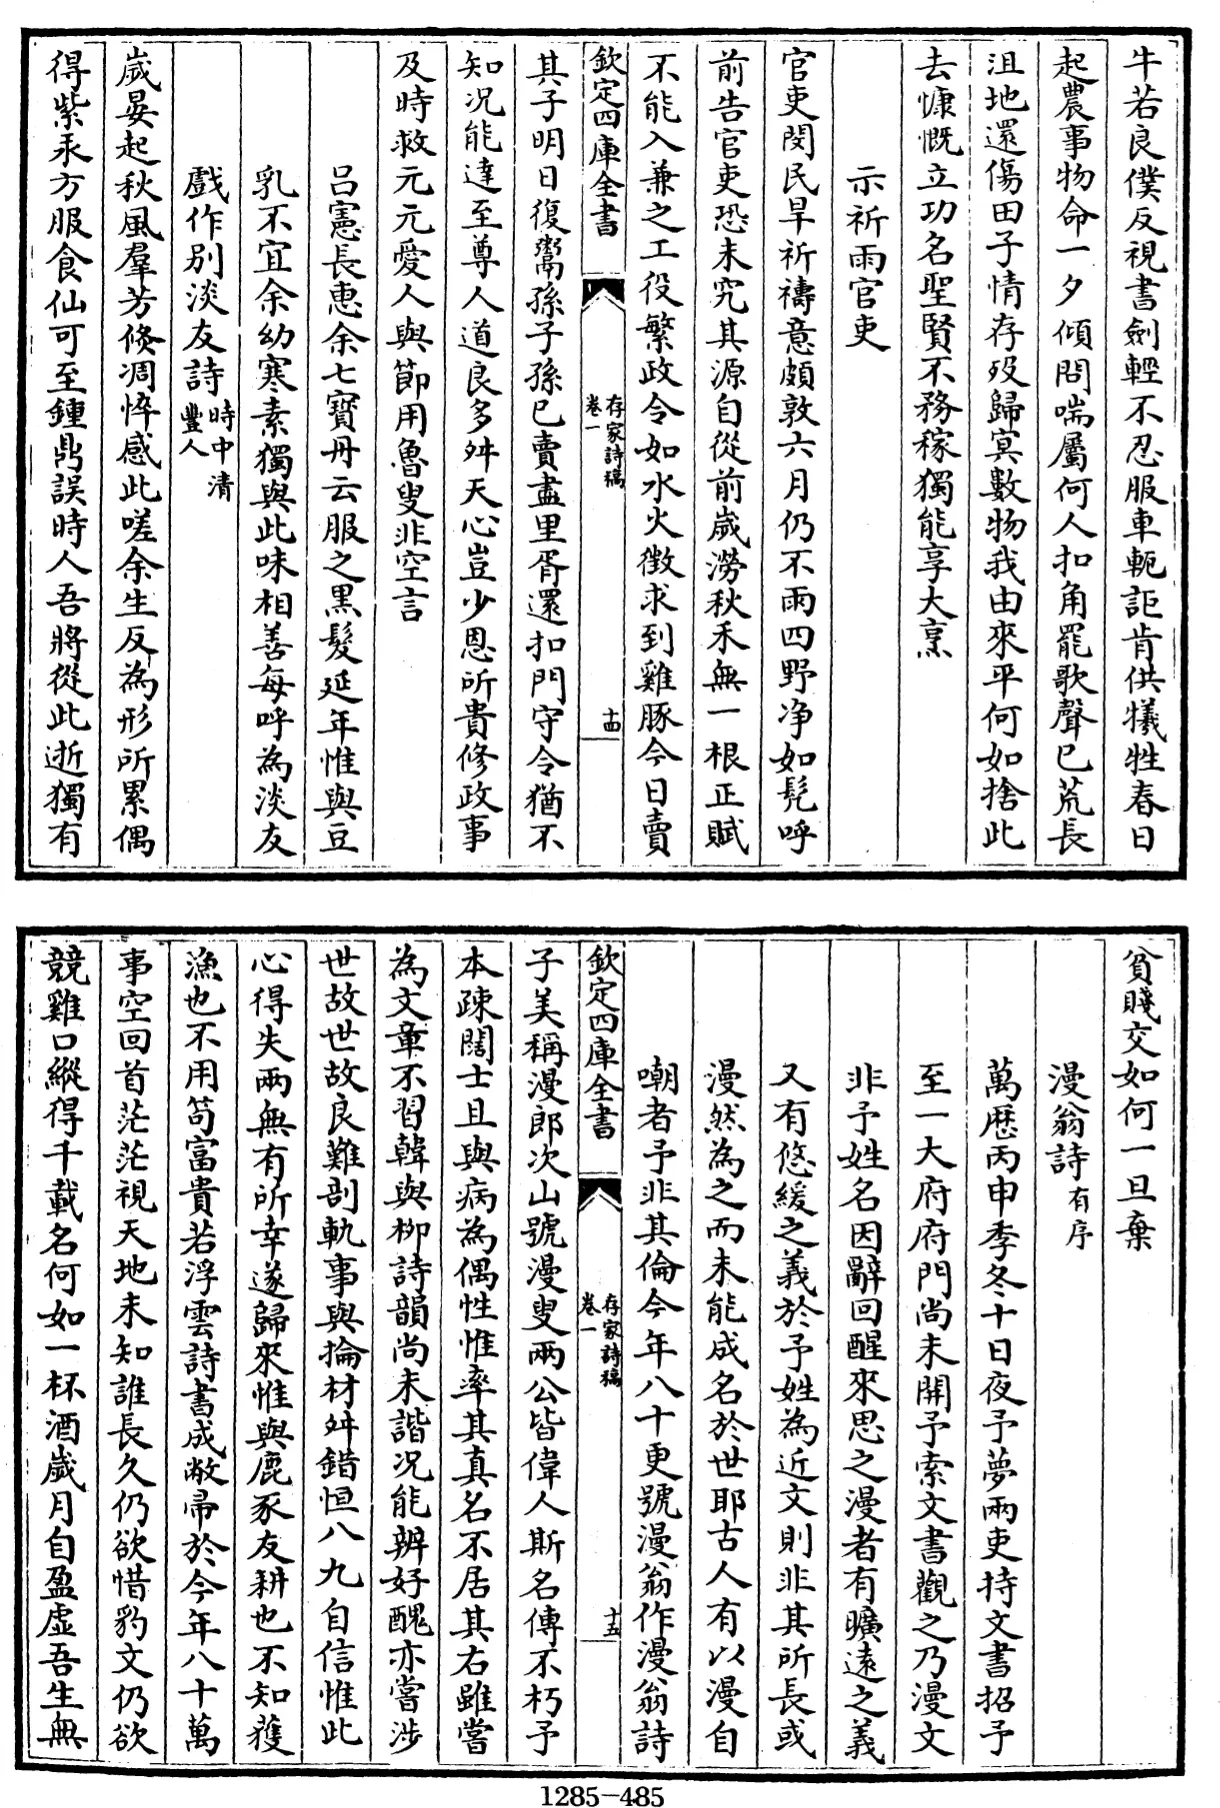 牛若良僕反視書劍輕不忍服車軛詎肯供犧牲春日
起農事物命一夕傾問喘屬何人扣角罷歌聲已荒長
沮地還傷田子情存歿歸冥數物我由來平何如捨此
去慷慨立功名聖賢不務稼獨能享大烹
示祈雨官吏
官吏閔民旱祈禱意頗敦六月仍不雨四野浄如髡呼
前告官吏恐未究其源自從前歲澇秋禾無一根正賦
不能入兼之工役繁政令如水火徵求到雞豚今日賣
欽定四庫全書
存家詩稿
卷一
十四
其子明日復鬻孫子孫已賣盡里胥還扣門守令猶不
知况能達至尊人道良多舛天心豈少恩所貴修政事
及時救元元愛人與節用魯叟非空言
呂憲長惠余七寶丹云服之黑髮延年惟與豆
乳不宜余幼寒素獨與此味相善每呼為淡友
戲作别淡友詩時中清
豐人
歲晏起秋風羣芳倐凋悴感此嗟余生反為形所累偶
得紫汞方服食仙可至鍾鼎誤時人吾將從此逝獨有
貧賤交如何一旦棄
漫翁詩有序
萬歷丙申季冬十日夜予夢兩吏持文書招予
至一大府府門尚未開予索文書觀之乃漫文
非予姓名因辭回醒來思之漫者有曠遠之義
又有悠緩之義於予姓為近文則非其所長或
漫然為之而未能成名於世耶古人有以漫自
嘲者予非其倫今年八十更號漫翁作漫翁詩
欽定四庫全書
存家詩稿
卷一
十五
子美稱漫郎次山號漫叟兩公皆偉人斯名傳不朽予
本疎闊士且與病為偶性惟率其真名不居其右雖嘗
為文章不習韓與柳詩韻尚未諧况能辨好醜亦嘗涉
世故世故良難剖軌事與掄材舛錯恒八九自信惟此
心得失兩無有所幸遂歸來惟與鹿豕友耕也不知穫
漁也不用笱富貴若浮雲詩書成敝帚於今年八十萬
事空回首茫茫視天地未知誰長久仍欲惜豹文仍欲
競雞口縱得千載名何如一杯酒歲月自盈虛吾生無
1285-485